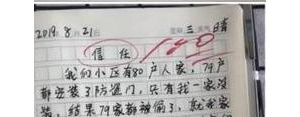 2019.8.21 星期三 天气晴
信任 100
我们小区有80户人家,79户
都安装了防盗门,只有我一家没
装,结果79家都被偷了,就我家